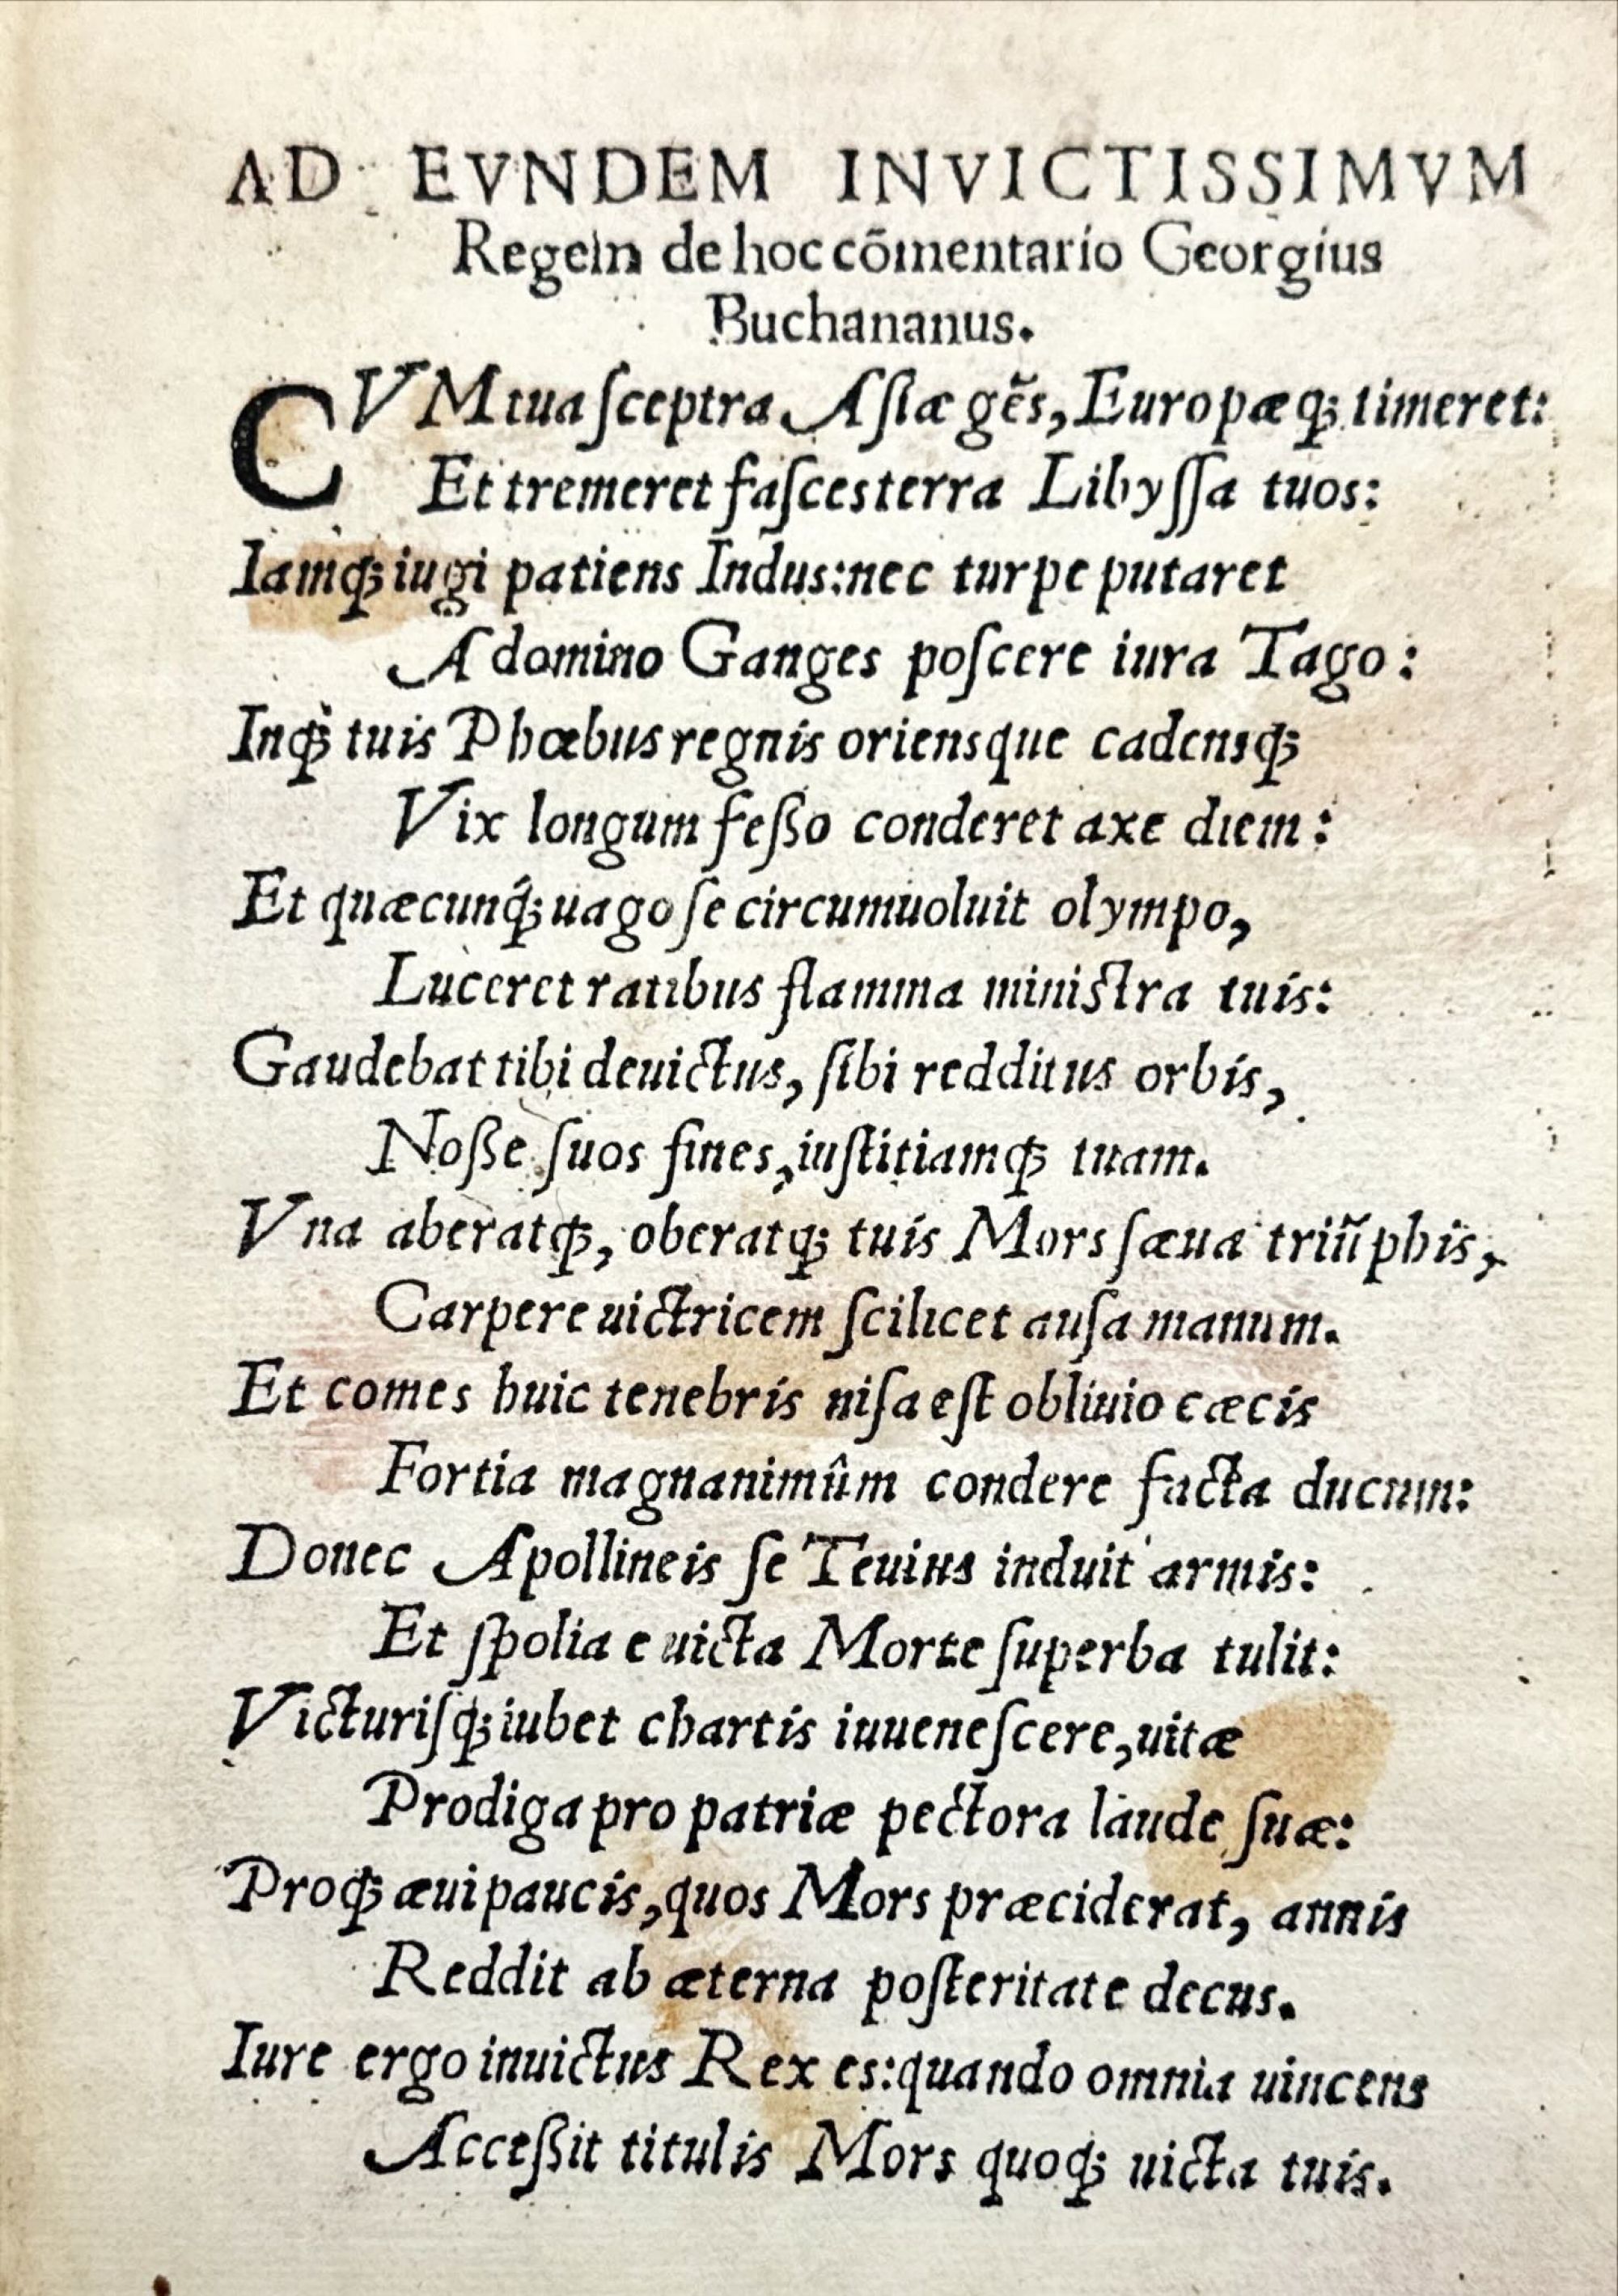 AD EVNDEM INVICTISSIMVM
Regem de hoc cõmentario Georgius
Buchananus.
CVM tua ſceptra Aſiæ gẽs, Europæq́; timeret:
Et tremeret faſces terra Libyſſa tuos:
Iamq́; iugi patiens Indus: nec turpe putaret
A domino Ganges poſcere iura Tago:
Inq́; tuis Phœbus regnis oriensque cadensq́;
Vix longum feſſo conderet axe diem:
Et quæcunq́; uago ſe circumuoluit olympo,
Luceret ratibus flamma miniſtra tuis:
Gaudebat tibi deuictus, ſibi redditus orbis,
Noſſe ſuos fines, iuſtitiamq́; tuam.
Vna aberatq́;, oberatq́; tuis Mors ſæua triũphis,
Carpere uictricem ſcilicet auſa manum.
Et comes huic tenebris niſa eſt obliuio cæcis
Fortia magnanimûm condere facta ducum:
Donec Apollineis ſe Teuius induit armis:
Et ſpolia e uicta Morte ſuperba tulit:
Victuriſq́; iubet chartis iuueneſcere, uitæ
Prodiga pro patriæ pectora laude ſuæ:
Proq́; æui paucis, quos Mors præciderat, annis
Reddit ab æterna poſteritate decus.
Iure ergo inuictus Rex es: quando omnia uincens
Acceſſit titulis Mors quoq́; uicta tuis.